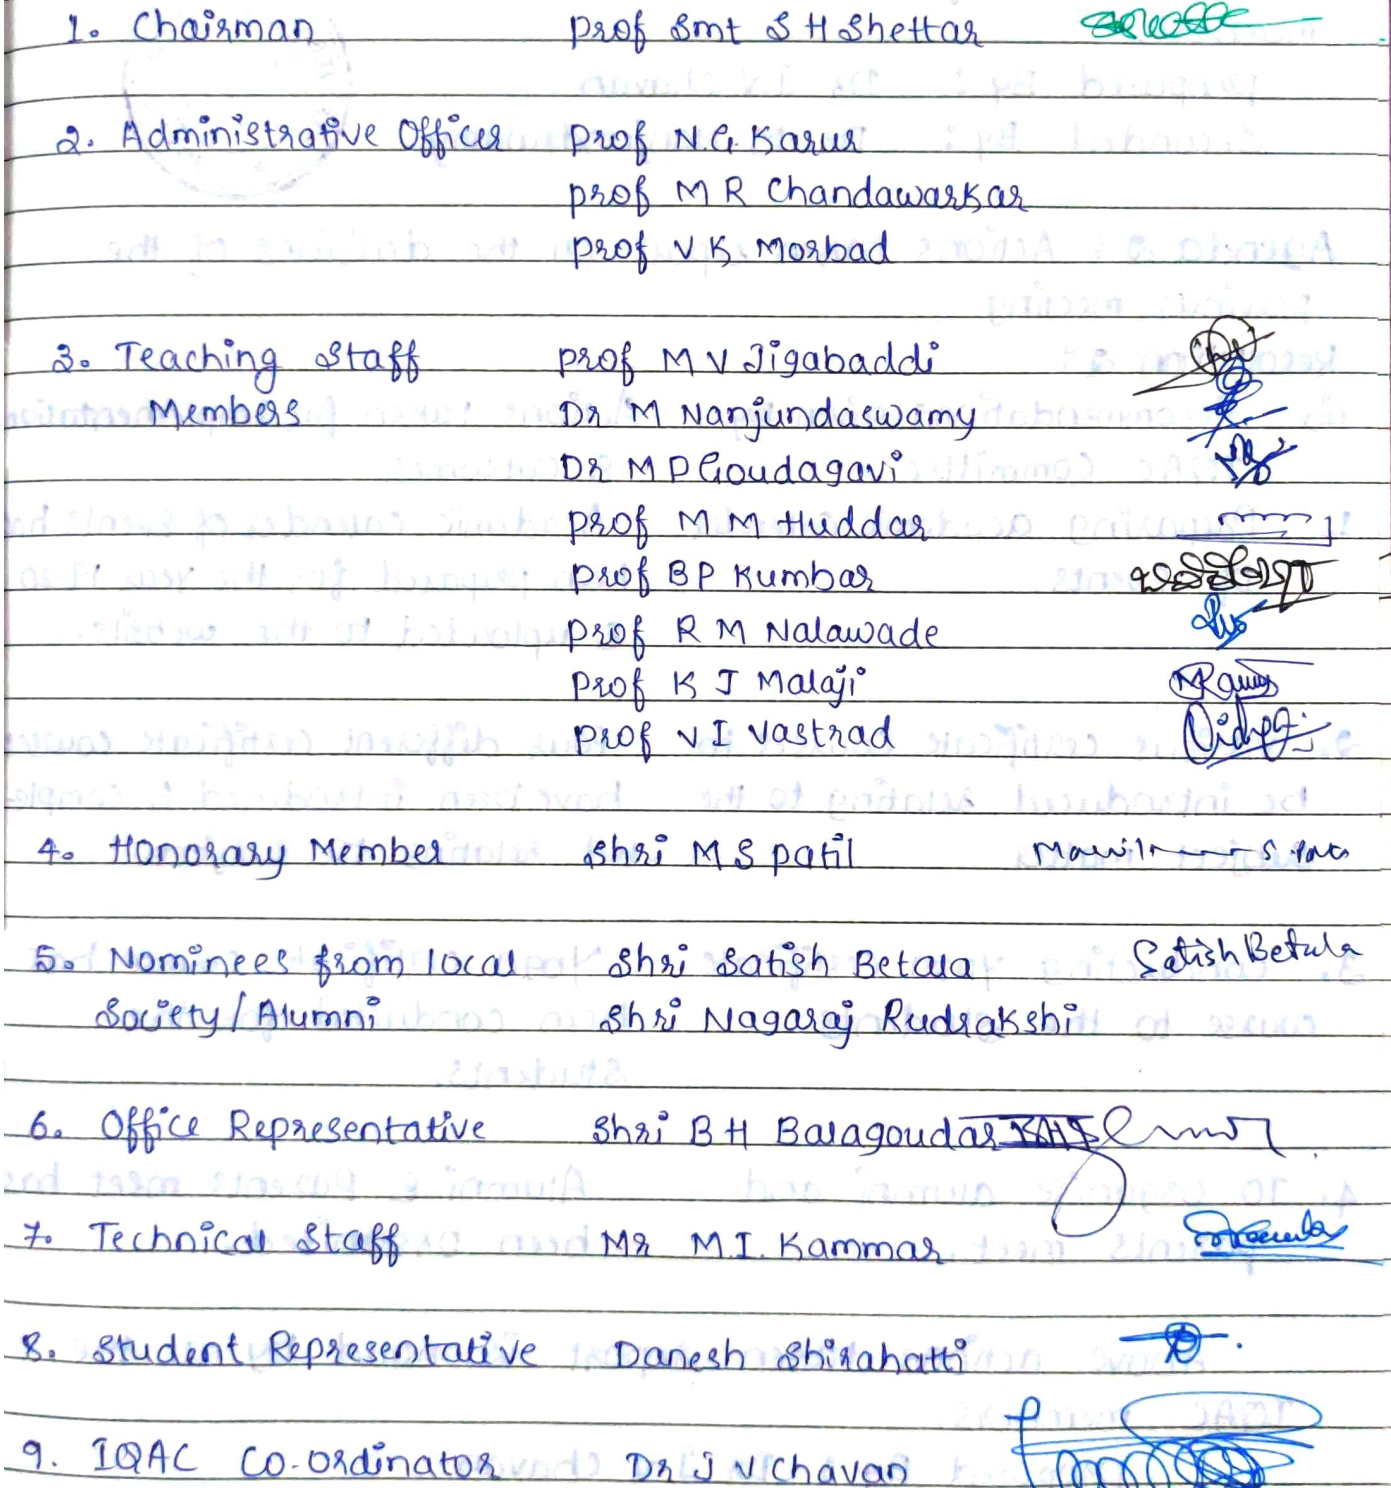 1. Chairman Prof Smt S H Shettar
2. Administrative Officer Prof N.G. Karur
Prof M R Chandawarkar
Prof V K Morbad
3. Teaching Staff Prof M V Jigabaddi
Members Dr M Nanjundaswamy
Dr M P Goudagavi
Prof M M Huddar
Prof B P Kumbar
Prof R M Nalawade
Prof K J Malaji
Prof V I Vastrad
4. Honorary Member Shri M S Patil
5. Nominees from local Shri Satish Betala Satish Betala
Society / Alumni Shri Nagaraj Rudrakshi
6. Office Representative Shri B H Balagoudar
7. Technical Staff Mr M.I. Kammar
8. Student Representative Danesh Shirahatti
9. IQAC Co-ordinator Dr J V Chavan